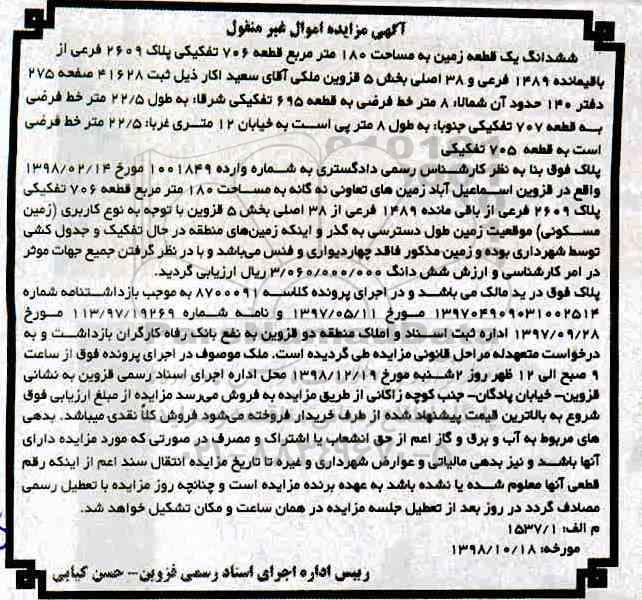 آگهی مزایده اموال غیر منقول
ششدانگ یک قطعه زمین به مساحت ۱۸۰ متر مربع قطعه ۷۰۶ تفکیکی پلاک ۲۶۰۹ فرعی از
باقیمانده ۱۴۸۹ فرعی و ۳۸ اصلی بخش ۵ قزوین ملکی آقای سعید اکار ذیل ثبت ۴۱۶۲۸ صفحه ۲۷۵
دفتر ۱۴۰ حدود آن شمالا: ۸ متر خط فرضی به قطعه ۶۹۵ تفکیکی شرقا: به طول ۲۲/۵ متر خط فرضی
به قطعه ۷۰۷ تفکیکی جنوبا: به طول ۸ متر پی است به خیابان ۱۲ متری غربا: ۲۲/۵ متر خط فرضی
است به قطعه ۷۰۵ تفکیکی
پلاک فوق بنا به نظر کارشناس رسمی دادگستری به شماره وارده ۱۰۰۱۸۴۹ مورخ ۱۳۹۸/۰۲/۱۴
واقع در قزوین اسماعیل آباد زمین های تعاونی نه گانه به مساحت ۱۸۰ متر مربع قطعه ۷۰۶ تفکیکی
پلاک ۲۶۰۹ فرعی از باقی مانده ۱۴۸۹ فرعی از ۳۸ اصلی بخش ۵ قزوین با توجه به نوع کاربری (زمین
مسکونی) موقعیت زمین طول دسترسی به گذر و اینکه زمین‌های منطقه در حال تفکیک و جدول کشی
توسط شهرداری بوده و زمین مذکور فاقد چهاردیواری و فنس می‌باشد و با در نظر گرفتن جمیع جهات موثر
در امر کارشناسی و ارزش شش دانگ ۳/۰۶۰/۰۰۰/۰۰۰ ریال ارزیابی گردید.
پلاک فوق در ید مالک می باشد و در اجرای پرونده کلاسه ۸۷۰۰۰۹۱ به موجب بازداشتنامه شماره
۱۳۹۷۰۴۹۰۹۰۳۱۰۰۲۵۱۴ مورخ ۱۳۹۷/۰۵/۱۱ و نامه شماره ۱۱۳/۹۷/۱۹۲۶۹ مورخ
۱۳۹۷/۰۹/۲۸ اداره ثبت اسناد و املاک منطقه دو قزوین به نفع بانک رفاه کارگران بازداشت و به
درخواست متعهدله مراحل قانونی مزایده طی گردیده است. ملک موصوف در اجرای پرونده فوق از ساعت
۹ صبح الی ۱۲ ظهر روز ۲شنبه مورخ ۱۳۹۸/۱۲/۱۹ محل اداره اجرای اسناد رسمی قزوین به نشانی
قزوین– خیابان پادگان– جنب کوچه زاکانی از طریق مزایده به فروش می‌رسد مزایده از مبلغ ارزیابی فوق
شروع به بالاترین قیمت پیشنهاد شده از طرف خریدار فروخته می‌شود فروش کلاً نقدی میباشد. بدهی
های مربوط به آب و برق و گاز اعم از حق انشعاب یا اشتراک و مصرف در صورتی که مورد مزایده دارای
آنها باشد و نیز بدهی مالیاتی و عوارض شهرداری و غیره تا تاریخ مزایده انتقال سند اعم از اینکه رقم
قطعی آنها معلوم شده یا نشده باشد به عهده برنده مزایده است و چنانچه روز مزایده با تعطیل رسمی
مصادف گردد در روز بعد از تعطیل جلسه مزایده در همان ساعت و مکان تشکیل خواهد شد.
م الف: ۱۵۳۷/۱
مورخه: ۱۳۹۸/۱۰/۱۸
رییس اداره اجرای اسناد رسمی قزوین– حسن کیایی